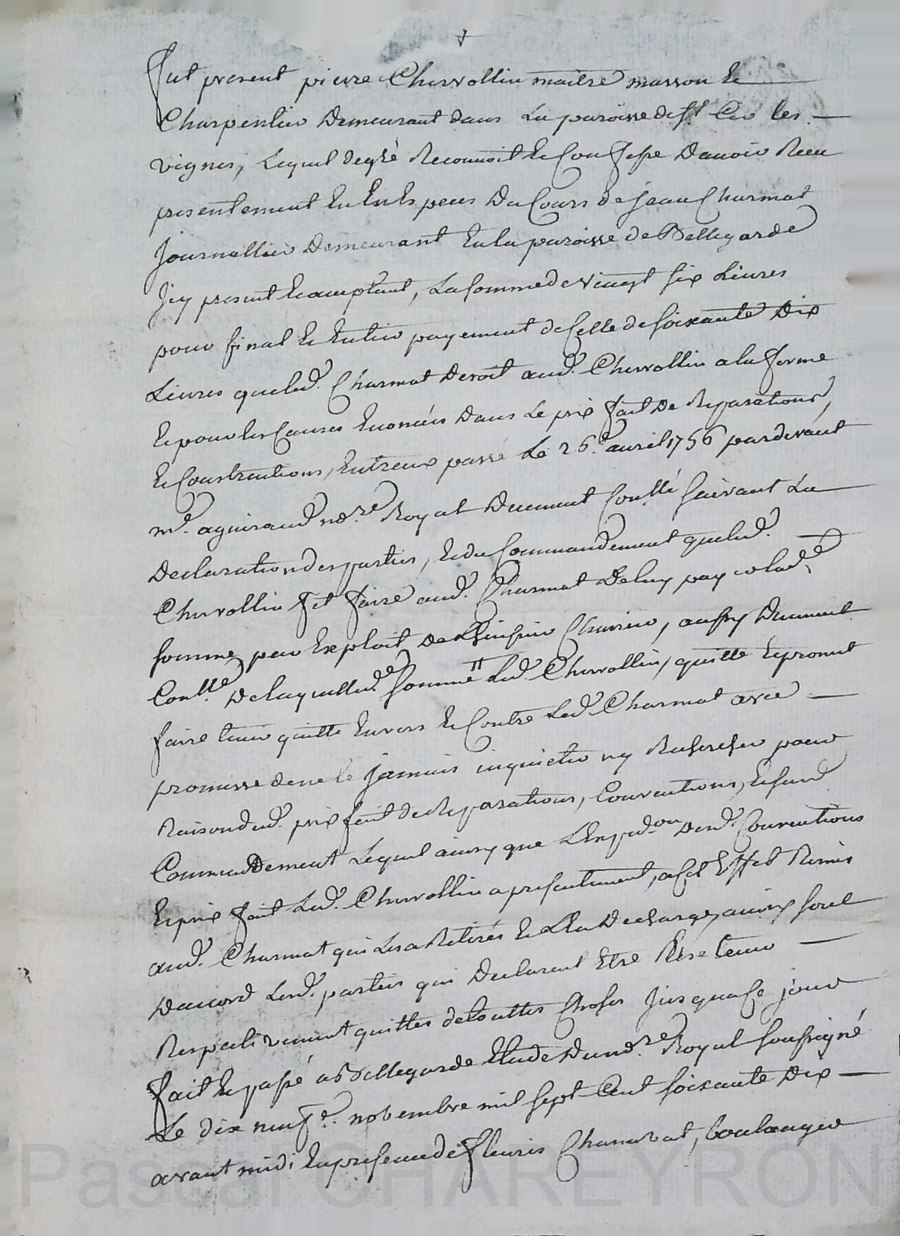 fut present pierre Chervollin maitre masson et
Charpentier demeurant dans la paroisse de St Cir les
vignes, lequel de gré Reconnoit et Confesse d'avoir Receu
presentement en Especes du Cours de jean Charmat
journallier demeurant en la paroisse de Bellegarde
icy present acceptant, la somme de vingt six livres
pour final et entier payement de Celle de soixante dix
Livres que led. Charmat devoit aud. Chervollin a la forme
et pour les Causes enoncées dans le prix fait de Reparations
et Constructions, entreux passé le 26e. avril 1756 pardevant
me. aguiraud nore. Royal duement Conllé suivant la
declaration des parties, et du Commandement que led.
Chervollin fit faire aud. Charmat de luy payer lade.
somme par Exploit de aussy duement
Conllé. de laquelle d. somme led. Chervollin, quitte et promet
faire tenir quitte envers et Contre led. Charmat avec
promesse de ne le jamais inquieter ny Rechercher pour
Raison dud. prix fait de Reparations, Conventions, et sud.
Commandement lequel ainsy que L'Expedon desd. Conventions
et prix fait led. Chervollin a presentement, a cet Effet Remis
aud. Charmat qui les a Retirés et l'en decharge, ainsy sont
daccord lesd. parties qui declarent Etre
Respectivement quittes de touttes choses jusqu'a ce jour
fait et passé a Bellegarde Etude du nore. Royal soussigné
Le dix neufe. novembre mil sept Cent soixante dix
avant midi en presence de fleuris Chanavat, boulanger
Pascal CHAREYRON